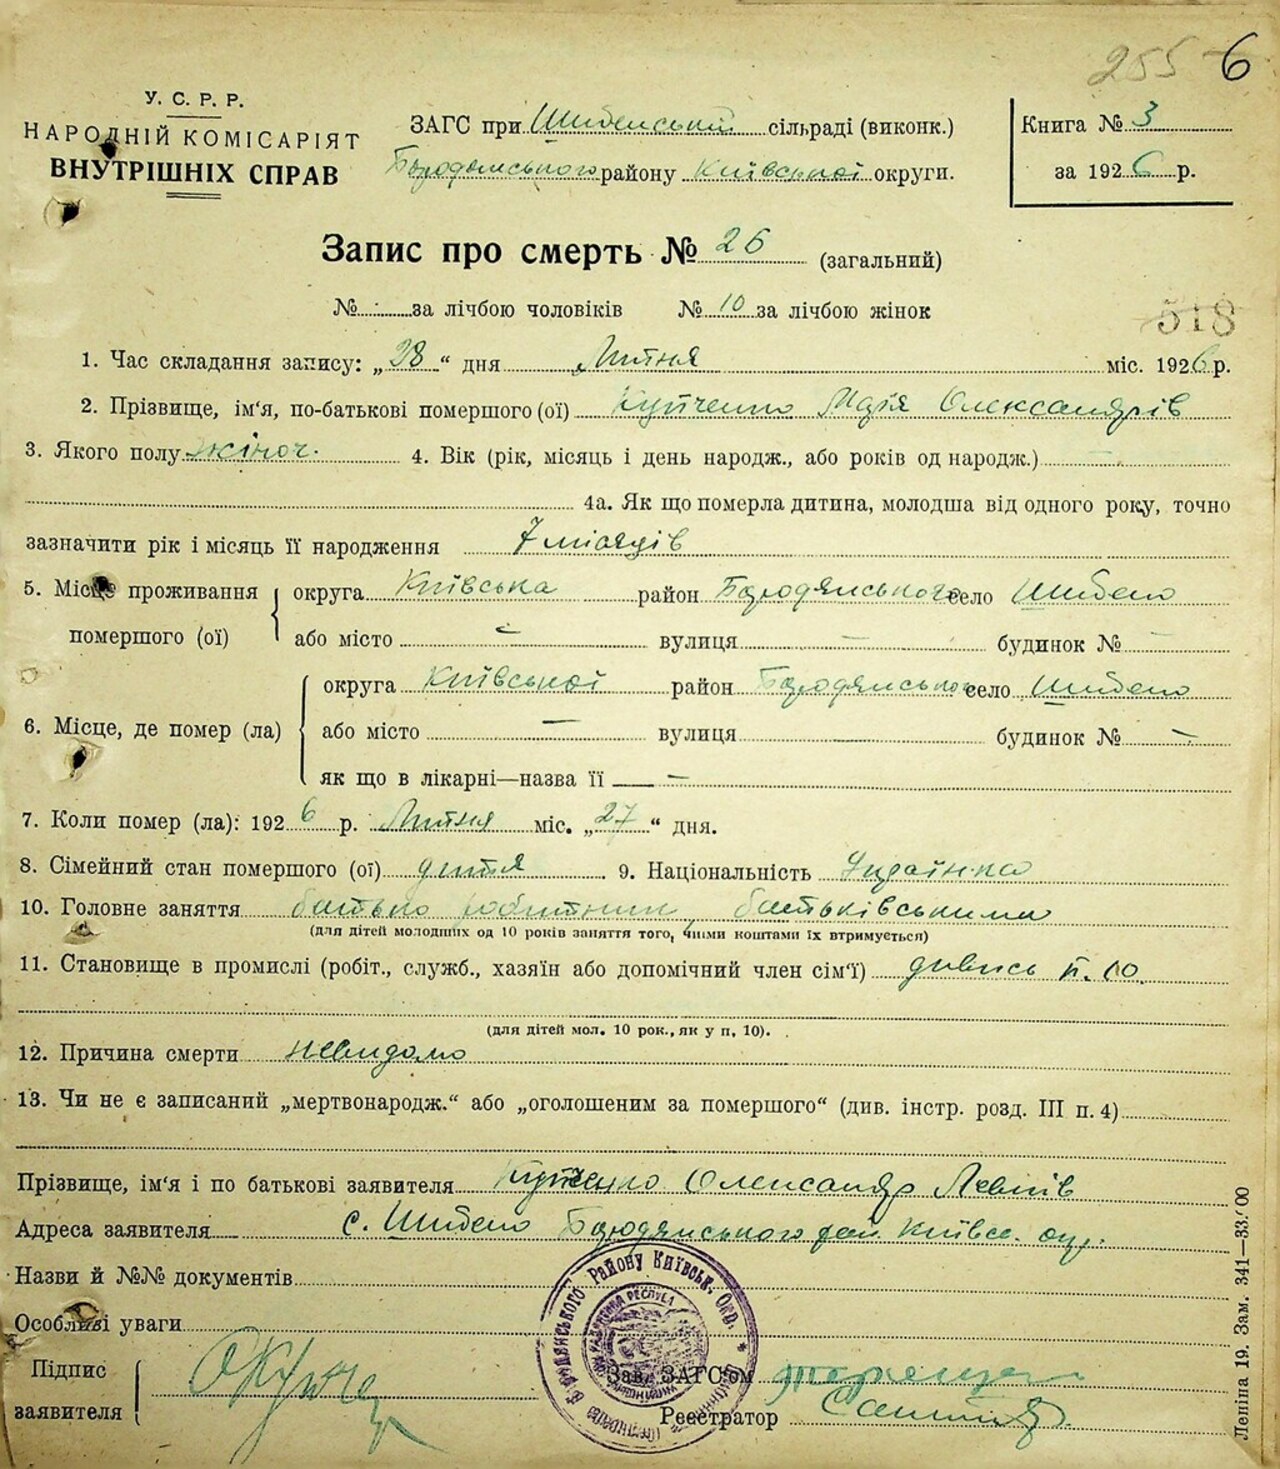 255 6
У. С. Р. Р.
НАРОДНІЙ КОМІСАРІЯТ
ВНУТРІШНІХ СПРАВ
ЗАГС при Шибенській сільраді (виконк.)
Бородянського району Київської округи.
Книга № 3
за 1926 р.
Запис про смерть № 26 (загальний)
№ за лічбою чоловіків № 10 за лічбою жінок
518
1. Час складання запису: „28“ дня Липня міс. 1926 р.
2. Прізвище, ім'я, по-батькові помершого (ої) Купченко Марія Олександрів
3. Якого полу жіноч. 4. Вік (рік, місяць і день народж., або років од народж.) —
4а. Як що померла дитина, молодша від одного року, точно
зазначити рік і місяць її народження 7 місяців
5. Місце проживання помершого (ої)
округа Київська район Бородянського село Шибено
або місто — вулиця — будинок № —
6. Місце, де помер (ла)
округа Київської район Бородянського село Шибено
або місто — вулиця будинок № —
як що в лікарні—назва її —
7. Коли помер (ла): 1926 р. Липня міс. „27“ дня.
8. Сімейний стан помершого (ої) дитя 9. Національність Українка
10. Головне заняття батько робітник, батьківськими
(для дітей молодших од 10 років заняття того, чиїми коштами їх втримується)
11. Становище в промислі (робіт., служб., хазяїн або допомічний член сім'ї) дивись п. 10
(для дітей мол. 10 рок., як у п, 10).
12. Причина смерти невидомо
13. Чи не є записаний „мертвонародж.“ або „оголошеним за помершого“ (див. інстр. розд. III п. 4)
Прізвище, ім'я і по батькові заявителя Купченко Олександр Левків
Адреса заявителя с. Шибено Бородянського рай. Київсь. окр.
Назви й №№ документів
Особливі уваги
Підпис заявителя
Зав. ЗАГС'ом
Реєстратор
Району Київськ. Окр.
Леніна 19. Зам. 341—33.000